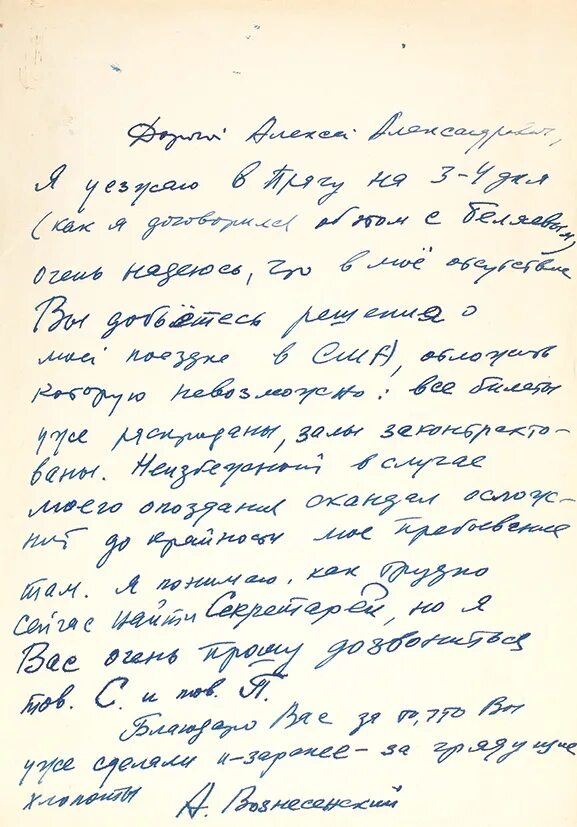 Дорогой Алексей Александрович,
Я уезжаю в Прагу на 3-4 дня
(как я договорился об этом с Беляевым)
очень надеюсь, что в моё отсутствие
Вы добьётесь решения о
моей поездке в США, отложить
которую невозможно: все билеты
уже распроданы, залы законтракто-
ваны. Неизбежный в случае
моего опоздания скандал ослож-
нит до крайности мое пребывание
там. Я понимаю, как трудно
сейчас найти Секретарей, но я
Вас очень прошу дозвониться
тов. С. и тов. П.
Благодарю Вас за то, что Вы
уже сделали и-заранее-за грядущие
хлопоты А. Вознесенский